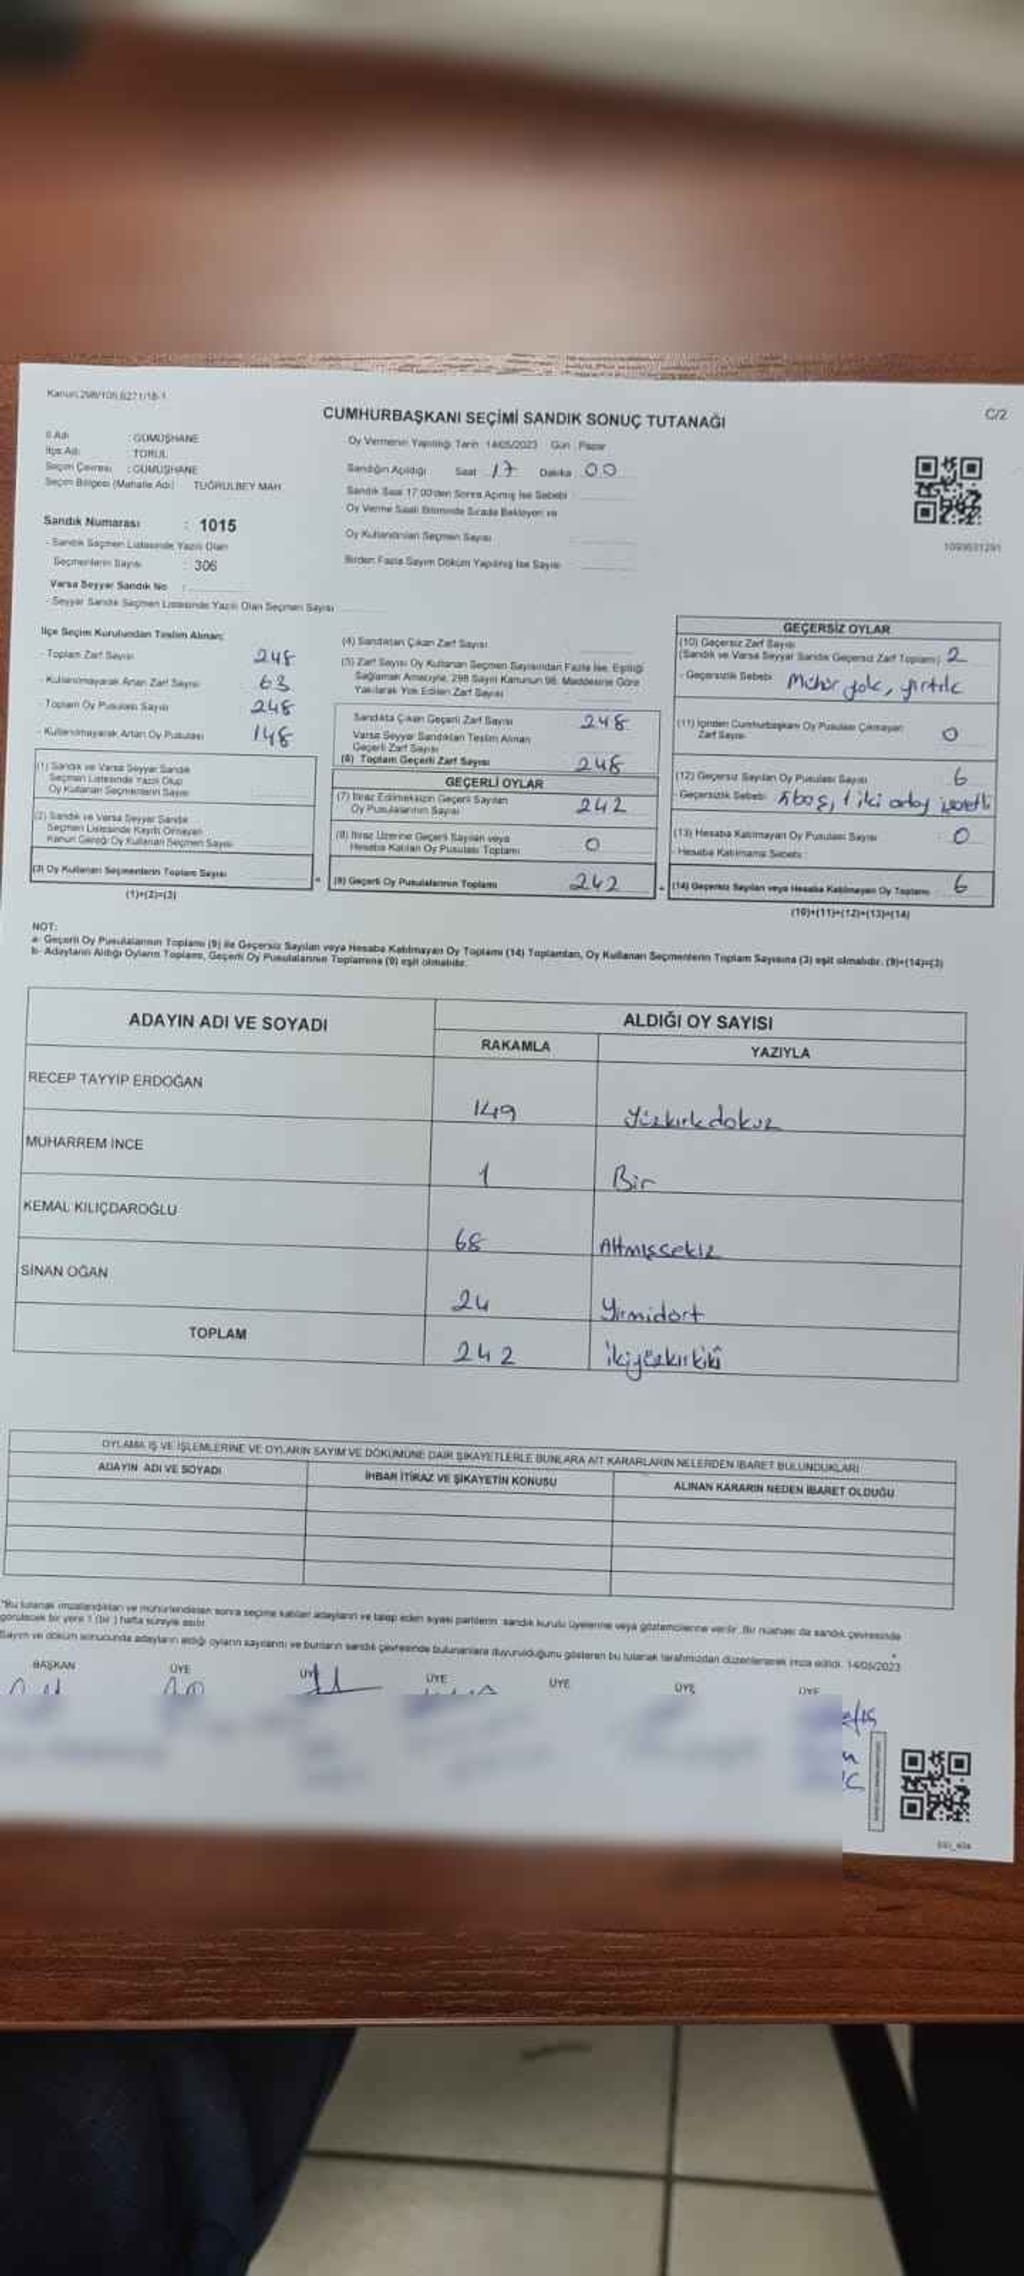 Kanun:298/105,6271/18-1
C/2
CUMHURBAŞKANI SEÇİMİ SANDIK SONUÇ TUTANAĞI
İl Adı : GÜMÜŞHANE
İlçe Adı : TORUL
Seçim Çevresi : GÜMÜŞHANE
Seçim Bölgesi (Mahalle Adı) TUĞRULBEY MAH
Sandık Numarası : 1015
- Sandık Seçmen Listesinde Yazılı Olan
Seçmenlerin Sayısı : 306
Varsa Seyyar Sandık No :
- Seyyar Sandık Seçmen Listesinde Yazılı Olan Seçmen Sayısı
Oy Vermenin Yapıldığı Tarih 14/05/2023 Gün : Pazar
Sandığın Açıldığı Saat 17 Dakika 00
Sandık Saat 17:00'den Sonra Açılmış İse Sebebi
Oy Verme Saati Bitiminde Sırada Bekleyen ve
Oy Kullandırılan Seçmen Sayısı
Birden Fazla Sayım Döküm Yapılmış İse Sayısı
İlçe Seçim Kurulundan Teslim Alınan:
- Toplam Zarf Sayısı 248
- Kullanılmayarak Artan Zarf Sayısı 63
- Toplam Oy Pusulası Sayısı 248
- Kullanılmayarak Artan Oy Pusulası 148
(1) Sandık ve Varsa Seyyar Sandık
Seçmen Listesinde Yazılı Olup
Oy Kullanan Seçmenlerin Sayısı
(2) Sandık ve Varsa Seyyar Sandık
Seçmen Listesinde Kayıtlı Olmayan
Kanun Gereği Oy Kullanan Seçmen Sayısı
(3) Oy Kullanan Seçmenlerin Toplam Sayısı
(1)+(2)=(3)
(4) Sandıktan Çıkan Zarf Sayısı
(5) Zarf Sayısı Oy Kullanan Seçmen Sayısından Fazla İse, Eşitliği
Sağlamak Amacıyla, 298 Sayılı Kanunun 98. Maddesine Göre
Yakılarak Yok Edilen Zarf Sayısı
Sandıkta Çıkan Geçerli Zarf Sayısı 248
Varsa Seyyar Sandıktan Teslim Alınan
Geçerli Zarf Sayısı
(6) Toplam Geçerli Zarf Sayısı 248
GEÇERLİ OYLAR
(7) İtiraz Edilmeksizin Geçerli Sayılan
Oy Pusulalarının Sayısı 242
(8) İtiraz Üzerine Geçerli Sayılan veya
Hesaba Katılan Oy Pusulası Toplamı 0
(9) Geçerli Oy Pusulalarının Toplamı 242
GEÇERSİZ OYLAR
(10) Geçersiz Zarf Sayısı
(Sandık ve Varsa Seyyar Sandık Geçersiz Zarf Toplamı) 2
- Geçersizlik Sebebi : Mühür yok, yırtık
(11) İçinden Cumhurbaşkanı Oy Pusulası Çıkmayan
Zarf Sayısı 0
(12) Geçersiz Sayılan Oy Pusulası Sayısı 6
- Geçersizlik Sebebi
(13) Hesaba Katılmayan Oy Pusulası Sayısı : 0
- Hesaba Katılmama Sebebi :
(14) Geçersiz Sayılan veya Hesaba Katılmayan Oy Toplamı 6
(10)+(11)+(12)+(13)=(14)
NOT:
a- Geçerli Oy Pusulalarının Toplamı (9) ile Geçersiz Sayılan veya Hesaba Katılmayan Oy Toplamı (14) Toplamları, Oy Kullanan Seçmenlerin Toplam Sayısına (3) eşit olmalıdır. (9)+(14)=(3)
b- Adayların Aldığı Oyların Toplamı, Geçerli Oy Pusulalarının Toplamına (9) eşit olmalıdır.
ADAYIN ADI VE SOYADI
ALDIĞI OY SAYISI
RAKAMLA YAZIYLA
RECEP TAYYİP ERDOĞAN 149 Yüzkırkdokuz
MUHARREM İNCE 1 Bir
KEMAL KILIÇDAROĞLU 68 Altmışsekiz
SİNAN OĞAN 24 Yirmidört
TOPLAM 242 İkiyüzkırkiki
OYLAMA İŞ VE İŞLEMLERİNE VE OYLARIN SAYIM VE DÖKÜMÜNE DAİR ŞİKAYETLERLE BUNLARA AİT KARARLARIN NELERDEN İBARET BULUNDUKLARI
ADAYIN ADI VE SOYADI İHBAR İTİRAZ VE ŞİKAYETİN KONUSU ALINAN KARARIN NEDEN İBARET OLDUĞU
"Bu tutanak imzalandıktan ve mühürlendikten sonra seçime katılan adayların ve talep eden siyasi partilerin sandık kurulu üyelerine veya gözlemcilerine verilir. Bir nüshası da sandık çevresinde
görülecek bir yere 1 (bir) hafta süreyle asılır.
Sayım ve döküm sonucunda adayların aldığı oyların sayılarını ve bunların sandık çevresinde bulunanlara duyurulduğunu gösteren bu tutanak tarafımızdan düzenlenerek imza edildi. 14/05/2023
BAŞKAN ÜYE ÜYE ÜYE ÜYE ÜYE ÜYE